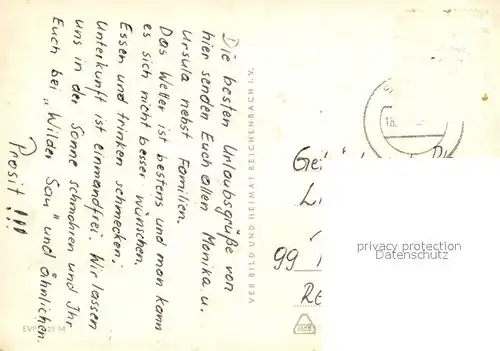 Die besten Urlaubsgrüße von
hier senden Euch allen Monika u.
Ursula nebst Familien.
Das Wetter ist bestens und man kann
es sich nicht besser wünschen.
Essen und trinken schmecken,
Unterkunft ist einmandfrei. Wir lassen
uns in der Sonne schmohren und Ihr
Euch bei "Wilder Sau" und ähnlichen.
Prosit !!!
VEB BILD UND HEIMAT REICHENBACH I.V.
M
18.
99
privacy protection
Datenschutz